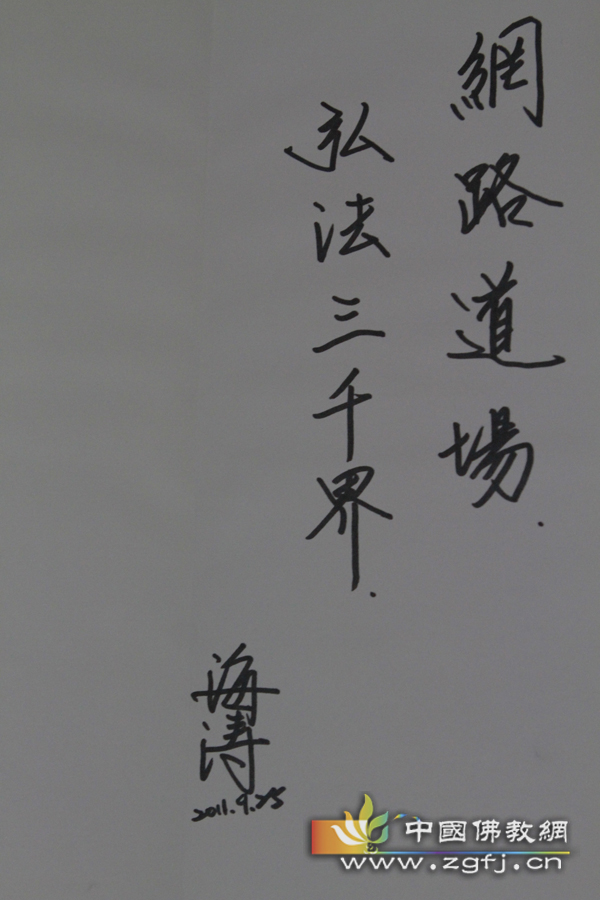 網路道場.
弘法三千界.
海涛
2011.9.25
中國佛教網
www.zgfj.cn